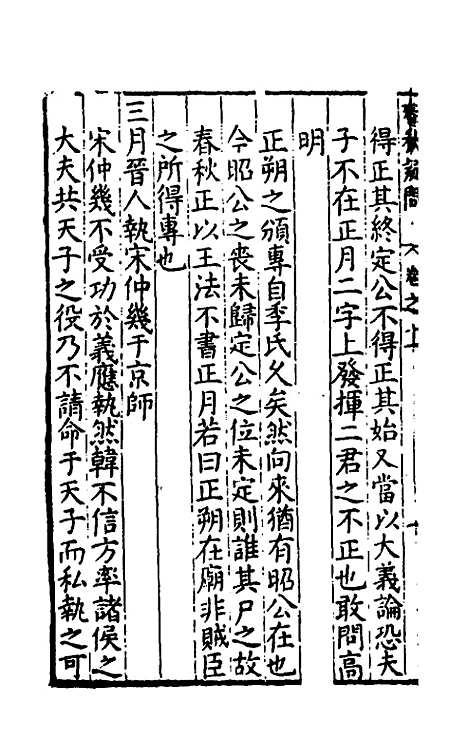 春秋疑問 卷之上
得正其終定公不得正其始又當以大義論恐夫
子不在正月二字上發揮二君之不正也敢問高
明
正朔之頒專自季氏久矣然向來猶有昭公在也
今昭公之喪未歸定公之位未定則誰其尸之故
春秋正以王法不書正月若曰正朔在廟非賊臣
之所得專也
三月晉人執宋仲幾于京師
宋仲幾不受功於義應執然韓不信方率諸侯之
大夫共天子之役乃不請命于天子而私執之可